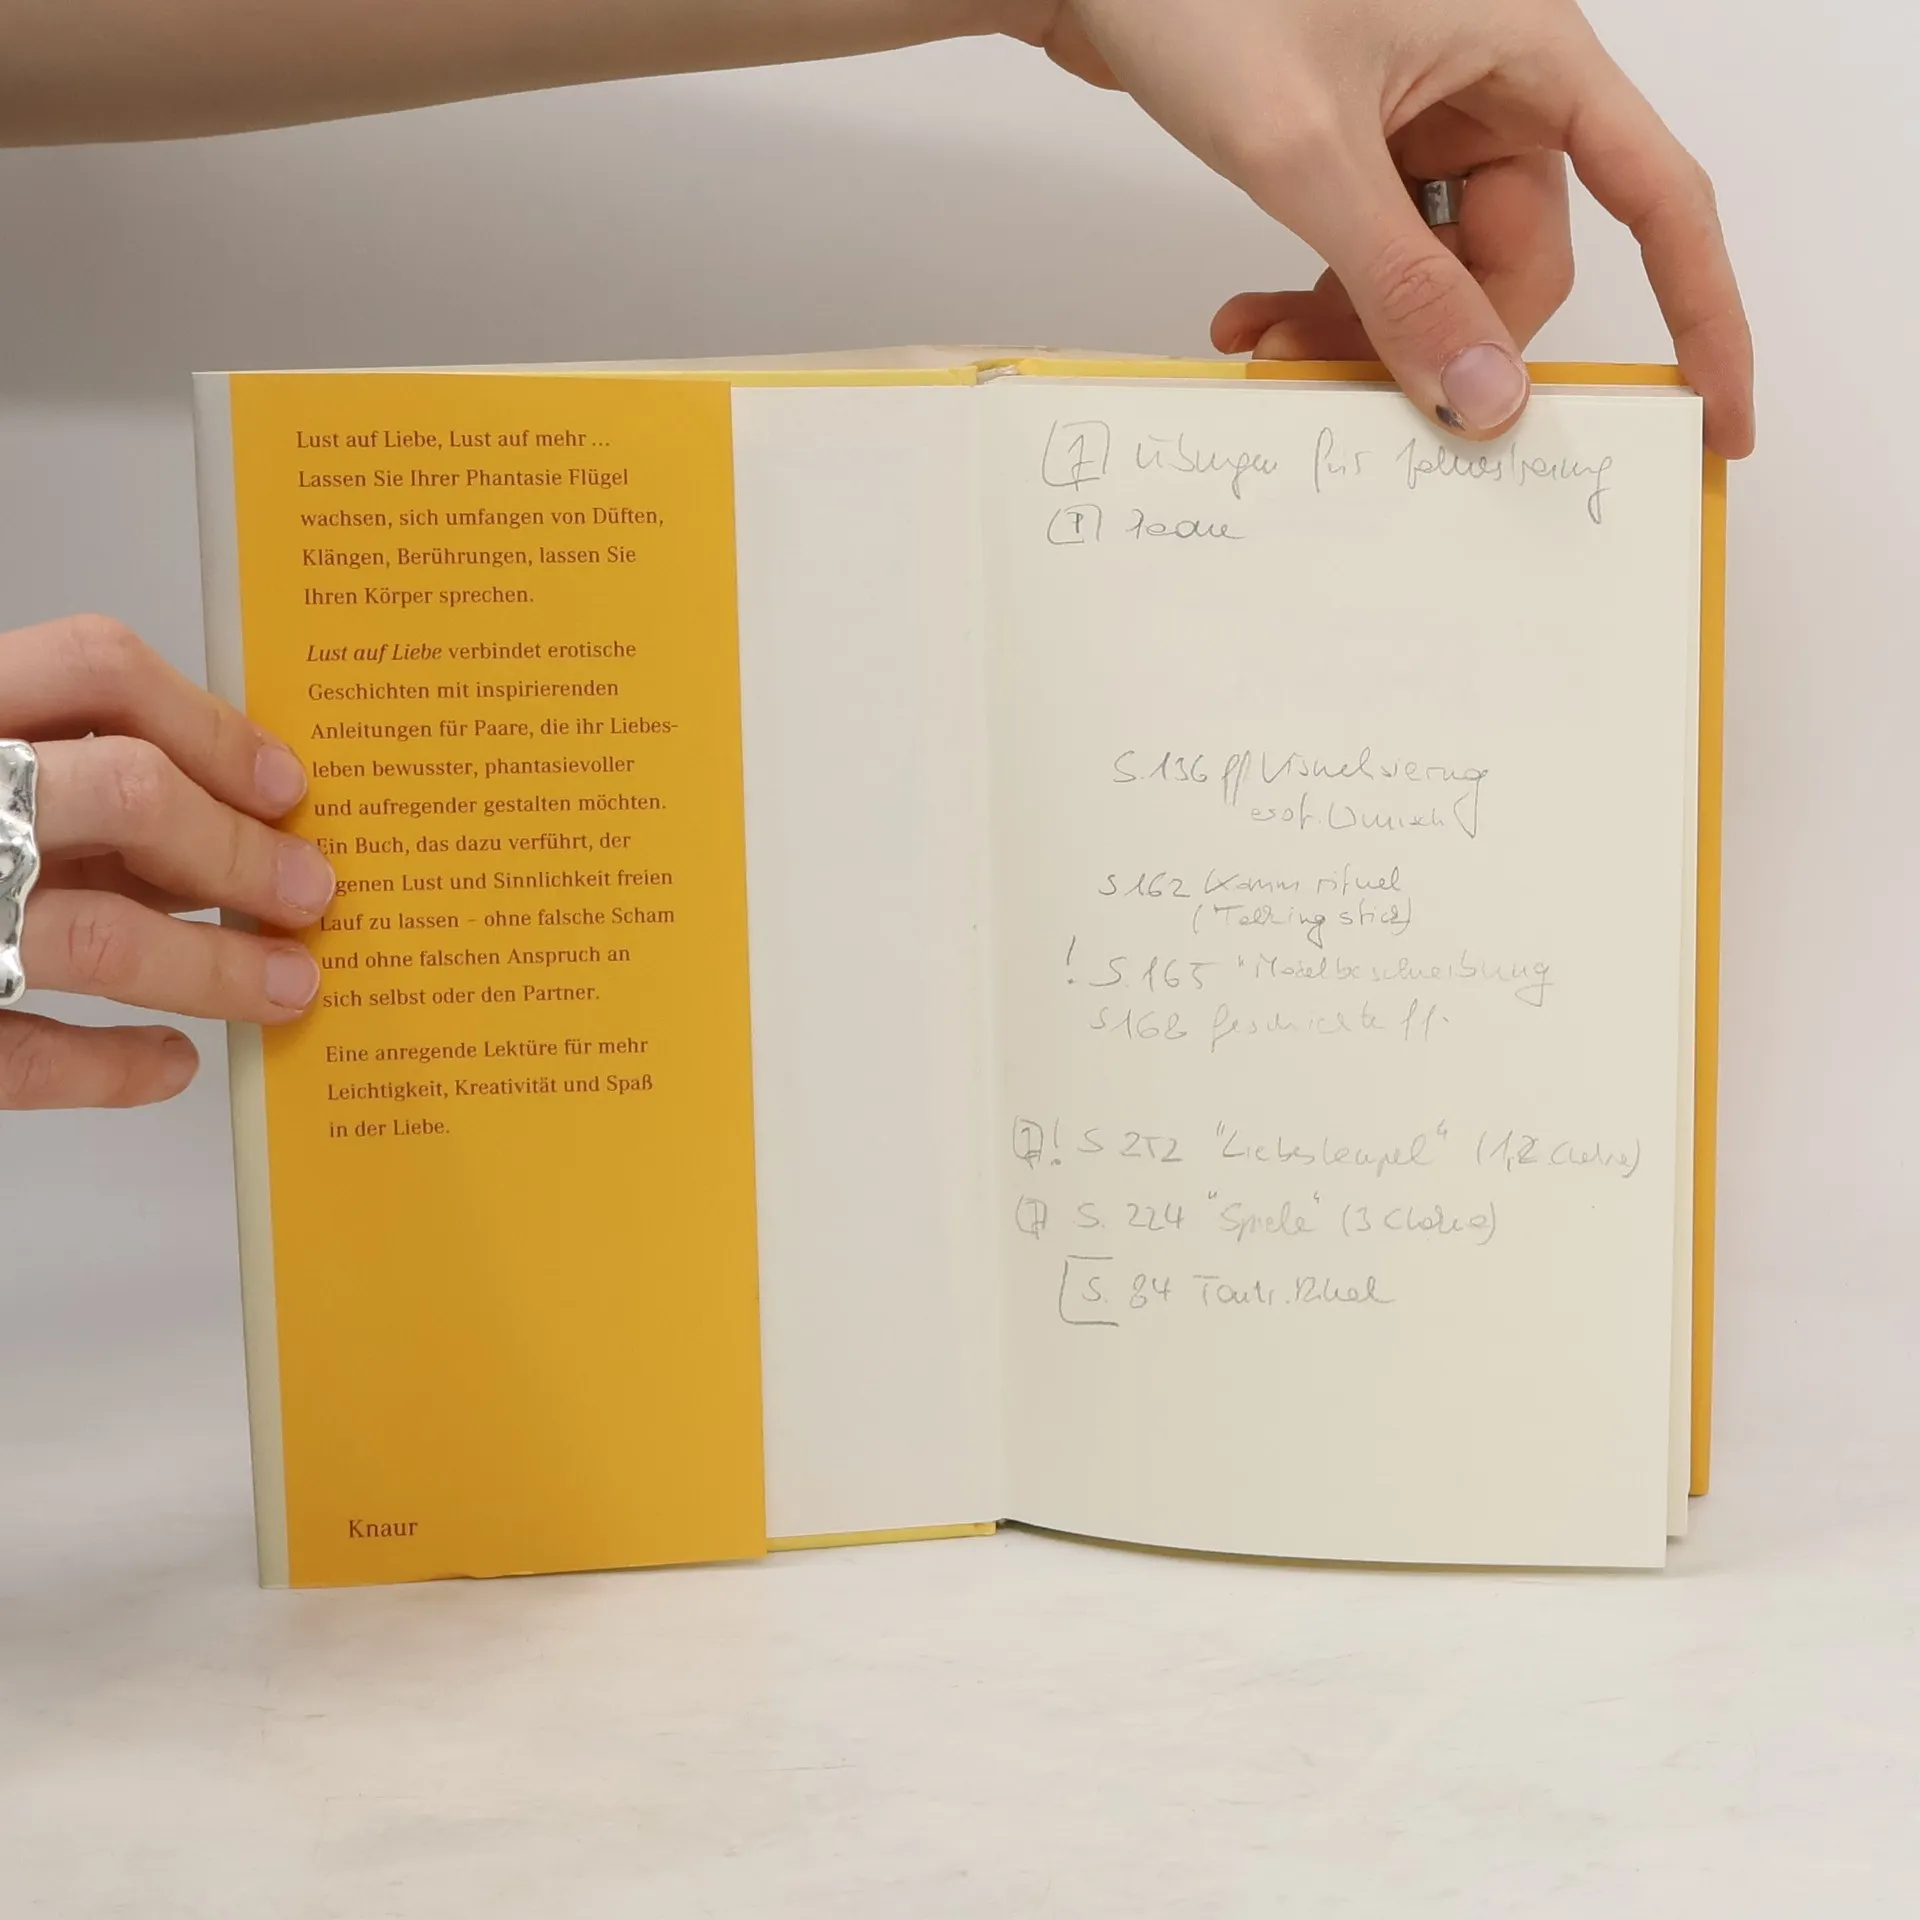 Lust auf Liebe, Lust auf mehr ...
Lassen Sie Ihrer Phantasie Flügel
wachsen, sich umfangen von Düften,
Klängen, Berührungen, lassen Sie
Ihren Körper sprechen.
Lust auf Liebe verbindet erotische
Geschichten mit inspirierenden
Anleitungen für Paare, die ihr Liebes-
leben bewusster, phantasievoller
und aufregender gestalten möchten.
Ein Buch, das dazu verführt, der
genen Lust und Sinnlichkeit freien
Lauf zu lassen – ohne falsche Scham
und ohne falschen Anspruch an
sich selbst oder den Partner.
Eine anregende Lektüre für mehr
Leichtigkeit, Kreativität und Spaß
in der Liebe.
Knaur
Übungen für
S. 136 ff Visualisierung
erot. Wunsch
S 162 Komm rituel
(Talking stick)
! S. 165 "Modelbeschreibung
S 168 Geschichte ff.
! S 252 "Liebestempel" (1,2
S. 224 "Spiele" (3
S. 84 Tantr. Ritual